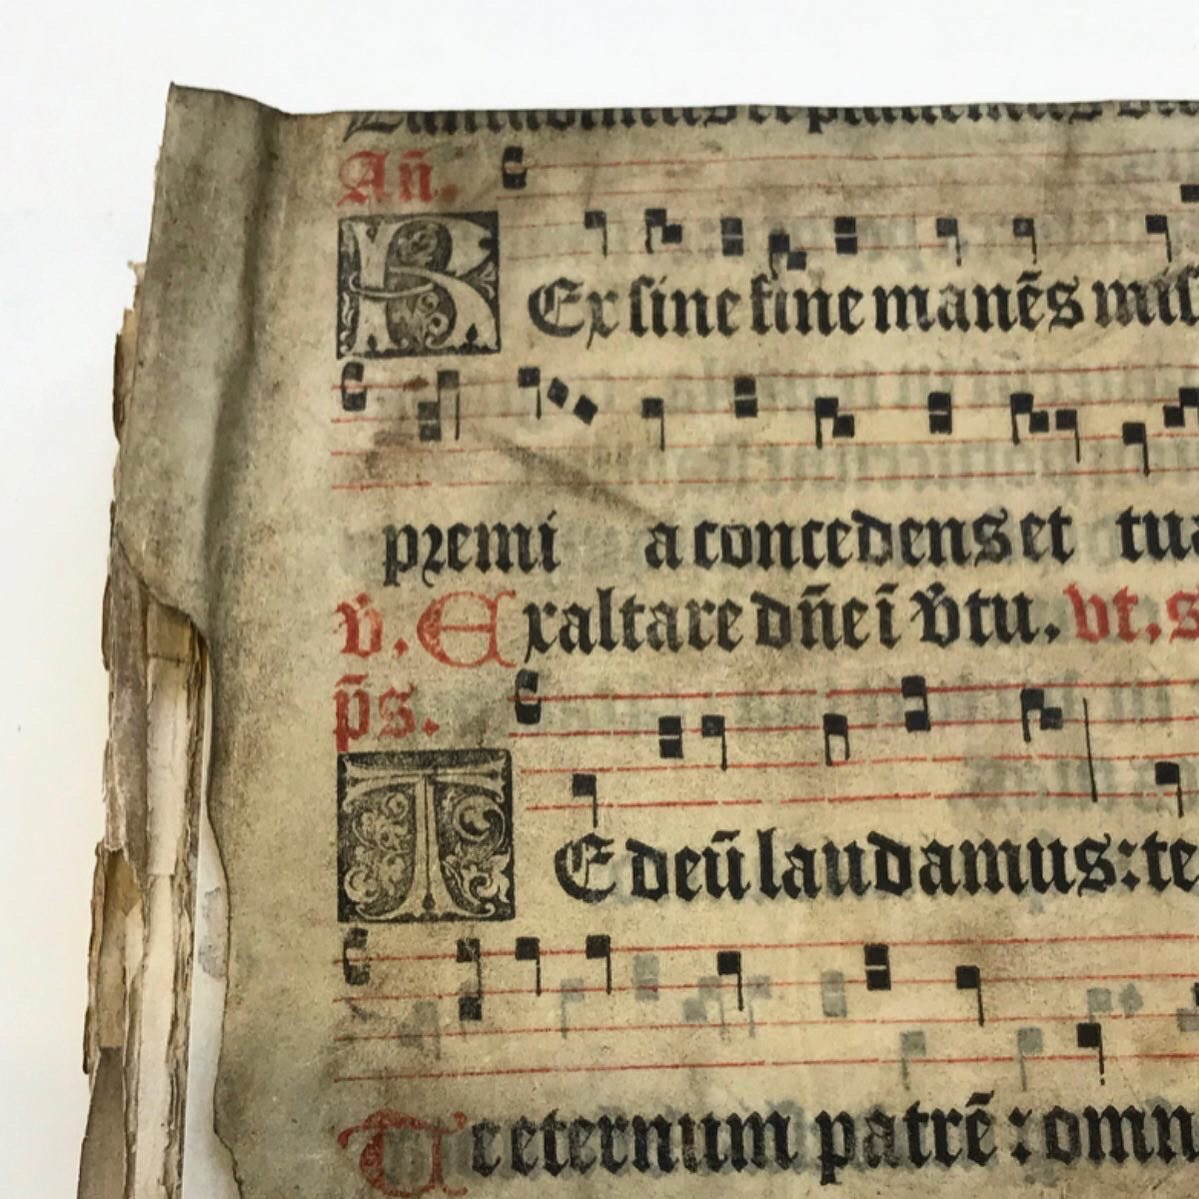 Añ.
REx sine fine manēs mis
premi a concedens et tua
v̄. Exaltare dñe ī v̄tu. vt. s
p̄s.
TE deū laudamus: te
Te eternum patrē: omn